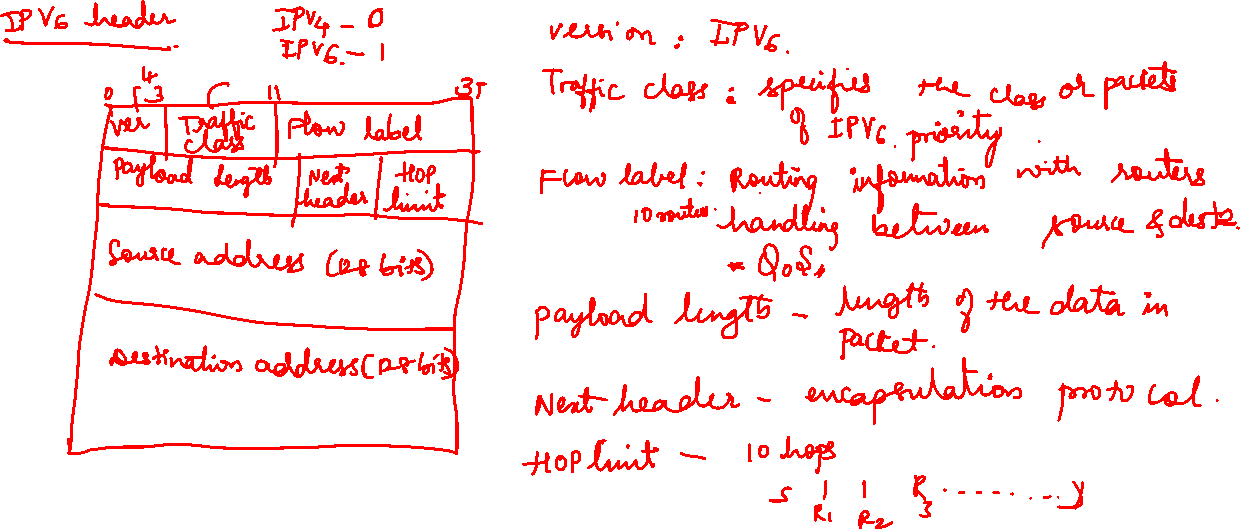 IPV6 header
IPV4 - 0
IPV6 - 1
0 3 4 11 31
ver Traffic class Flow label
Payload length Next header HOP limit
Source address (128 bits)
Destination address (128 bits)
version : IPV6.
Traffic class : specifies the class or packets
of IPV6 priority
Flow label : Routing information with routers
10 routers handling between source & destn.
QoS
payload length - length of the data in
packet.
Next header - encapsulation protocol.
HOP limit - 10 hops
S R1 R2 R3